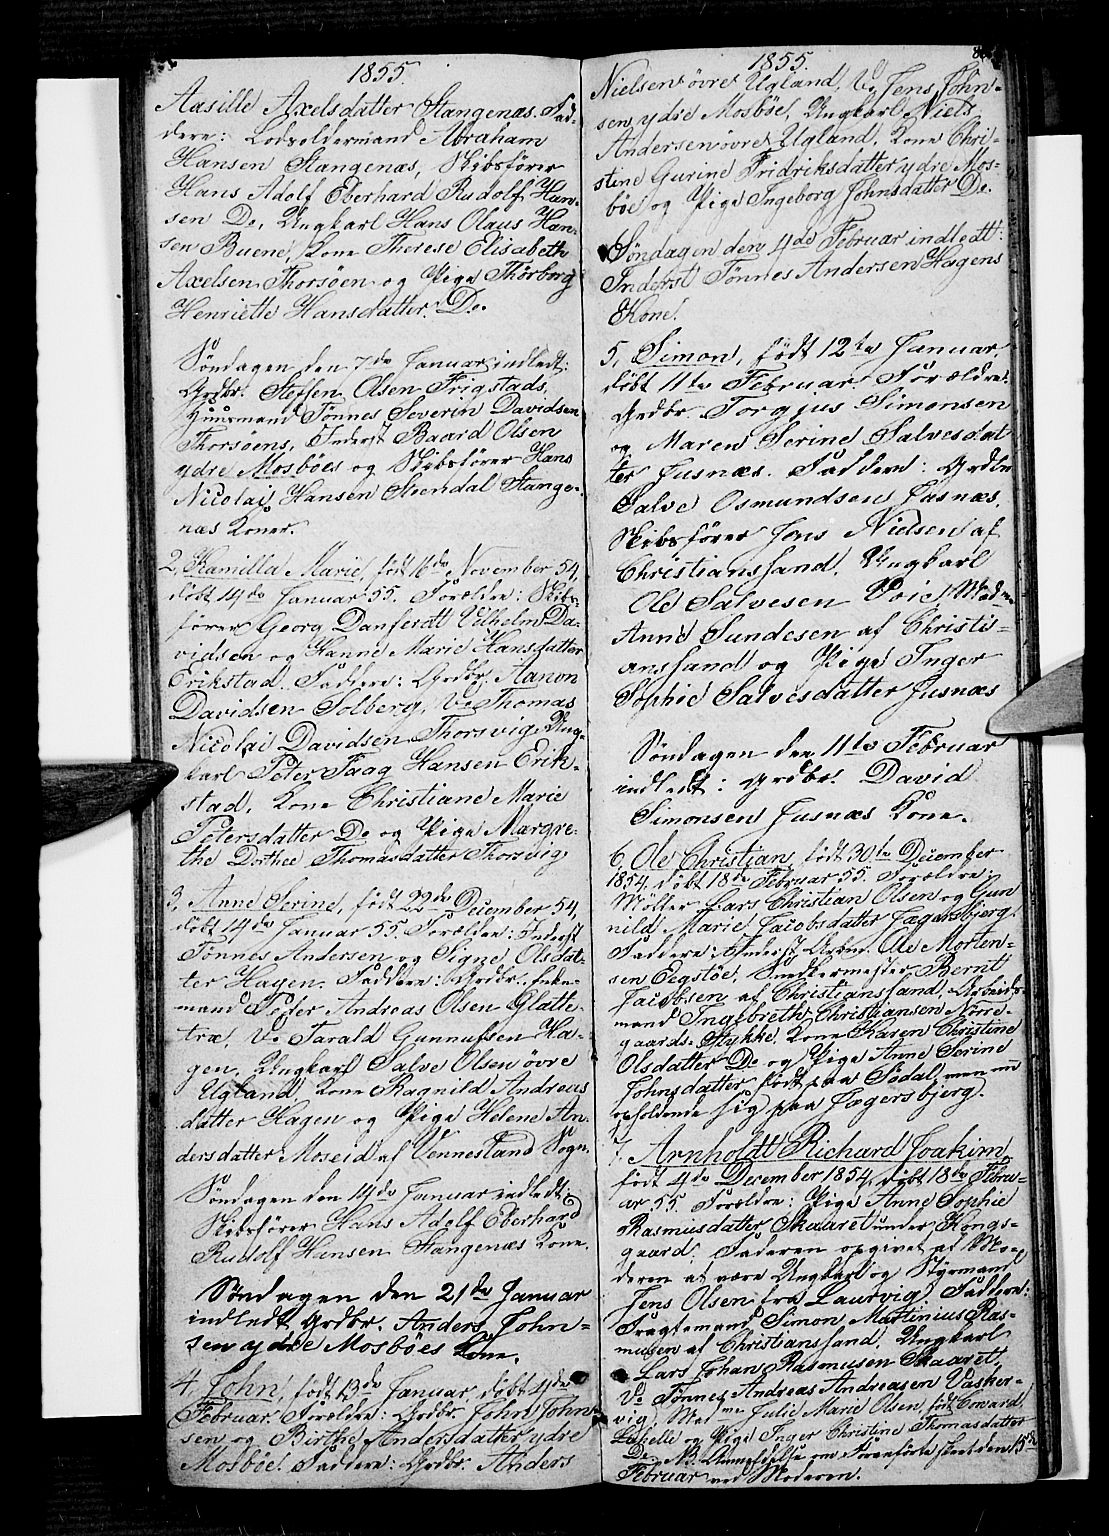 1855.
Aasille Axelsdatter Stangenæs. Fad-
dere: Lodsoldermand Abraham
Hansen Stangenæs, Skibsfører
Hans Adolf Eberhard Rudolf Han-
sen Do, Ungkarl Hans Olaus Han-
sen Buene, Kone Therese Elisabeth
Axelsen Thorsøen og Pige Thorborg
Henriette Hansdatter. Do.
Søndagen den 7de Januar indledt:
Grdbr. Steffen Olsen Frigstads,
Huusmand Tønnes Severin Davidsen
Thorsøens, Inderst Baard Olsen
ydre Mosbøes og Skibsfører Hans
Nicolai Hansen Stendal Stange-
næs Koner.
2, Kamilla Marie, født 16de November 54,
døbt 14de Januar 55. Forældre: Skibs-
fører Georg Danferdt Vilhelm Da-
vidsen og Hanne Marie Hansdatter
Erikstad. Faddere: Grdbr. Aanon
Davidsen Solberg, Do Thomas
Nicolai Davidsen Thorsvig, Ung-
karl Peter Faag Hansen Erik-
stad, Kone Christiane Marie
Petersdatter Do og Pige Margre-
the Dorthee Thomasdatter Thorsvig.
3, Anne Serine, født 22de December 54,
døbt 14de Januar 55. Forældre: Inderst
Tønnes Andersen og Signe Olsdat-
ter Hagen. Faddere: Grdbr. Enke-
mand Peder Andreas Olsen Glatte-
træ, Do Tarald Gunnufsen Ha-
gen, Ungkarl Salve Olsen øvre
Ugland Kone Thagnild Andreas
datter Hagen og Pige Helene An-
dersdatter Moseid af Vennesland Sogn.
Søndagen den 14de Januar indledt
Skibsfører Hans Adolf Eberhard
Rudolf Hansen Stangenæs Kone.
Søndagen den 21de Januar
indledt Grdbr. Anders John-
sen ydre Mosbøes Kone.
4, John, født 13de Januar, døbt 4de
Februar. Forældre: Grdbr. John John-
sen og Birthe Andersdatter ydre
Mosbøe. Faddere: Grdbr. Anders
1855.
Nielsen øvre Ugland, Do Jens John-
sen ydre Mosbøe, Ungkarl Niels
Andersen øvre Ugland, Kone Chri-
stine Gurine Fridriksdatter ydre Mos-
bøe og Pige Ingeborg Johnsdatter Do.
Søndagen den 4de Februar indledt:
Inderst Tønnes Andersen Hagens
Kone.
5, Simon, født 12te Januar,
døbt 11te Februar Forældre:
Grdbr. Torgjus Simonsen
og Maren Serine Salvesdat
ter Jusnæs. Faddere: Grdbr
Salve Osmundsen Jusnæs,
Skibsfører Jens Nielsen af
Christianssand, Ungkarl
Ole Salvesen Voie, Madme
Anne Sundesen af Christi-
anssand og Pige Inger
Sophie Salvesdatter Jusnæs
Søndagen den 11te Februar
indledt: Grdbr. David
Simonsen Jusnæs Kone.
6, Ole Christian, født 30te December
1854, døbt 18de Februar 55. Forældre:
Møller Lars Christian Olsen og Gun
nild Marie Jacobsdatter Jægersbjerg.
Faddere: Inderst Ole Morten-
sen Eegstøe, Snedkermester Bernt
Jacobsen af Christianssand, Arbeids-
mand Ingebreth Christiansen Nørre-
gaards-Stykke, Kone Karen Christine
Olsdatter Do og Pige Anne Serine
Johnsdatter født paa Sødal, men nu
opholdende sig paa Jægersbjerg.
7. Arnholdt Richard Joakim,
født 4de December 1854, døbt 18de Febru-
ar 55. Forældre: Pige Anne Sophie
Rasmusdatter Skaaret under Kongs-
gaard. Faderen opgivet af Mo-
deren at være Ungkarl og Styrmand
Jens Olsen fra Laurvig. Faddere:
Fragtemand Simon Martinius Ras-
musen af Christianssand, Ungkarl
Lars Johan Rasmusen Skaaret,
Do Tønnes Andreas Andreasen Vasker-
vig, Madme Julie Marie Olsen, født Coward,
Lahelle og Pige Inger Christine Thomasdatter
Do. NB. Anmeldelse om skeet den 15de
Februar ved Moderen.